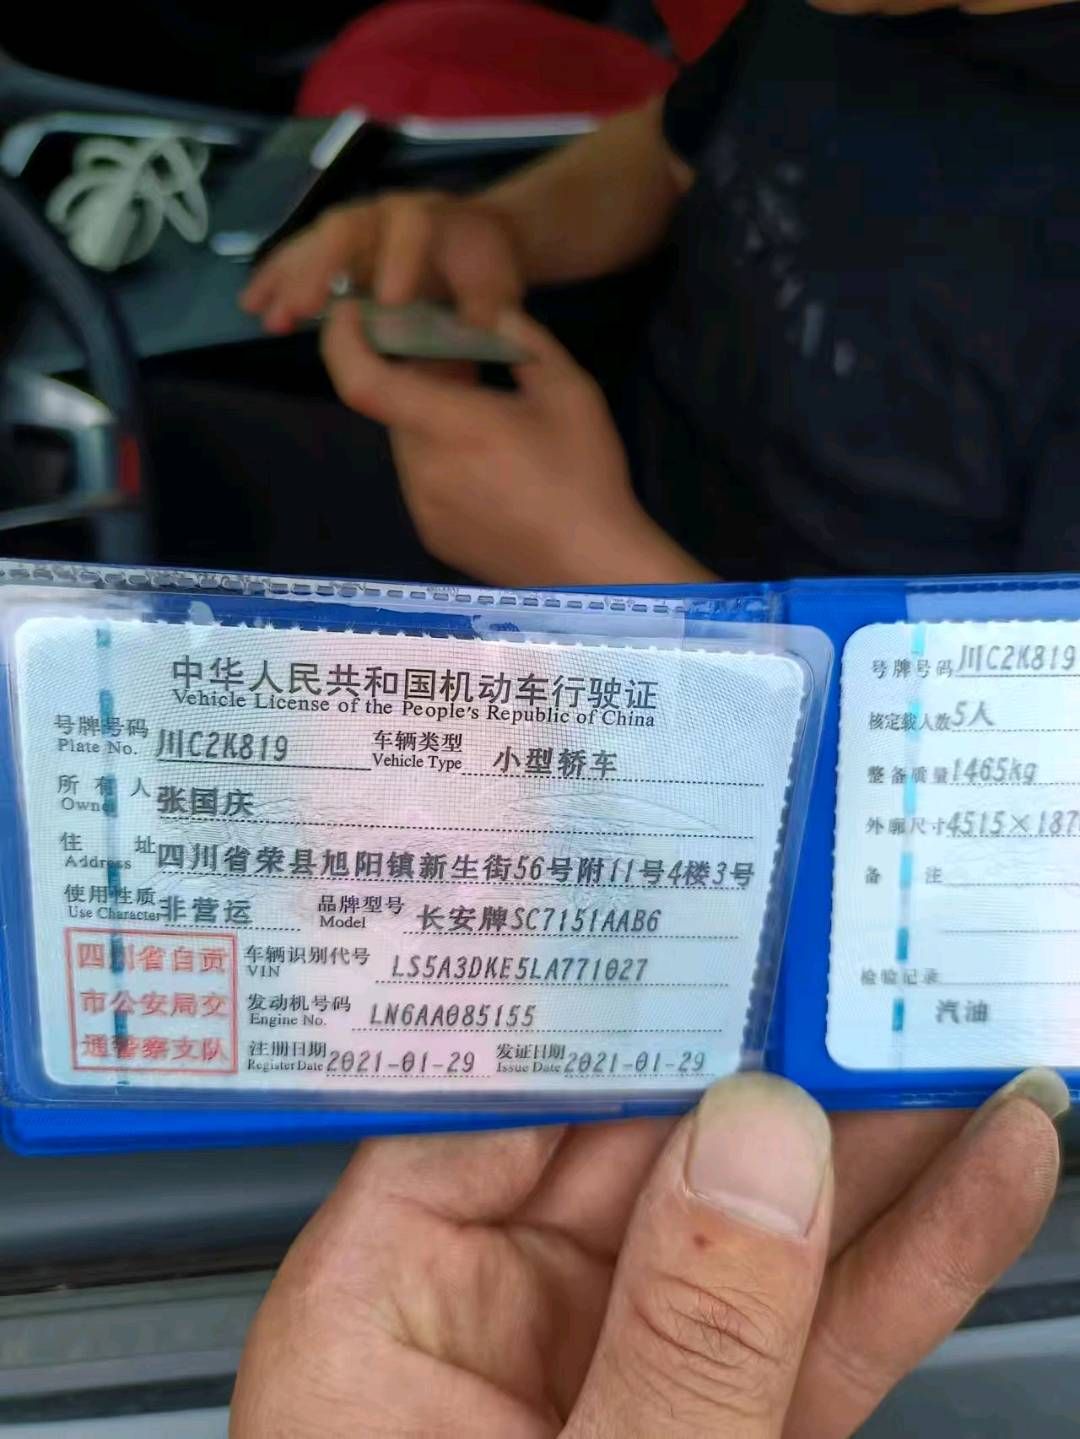 中华人民共和国机动车行驶证
Vehicle License of the People's Republic of China
号牌号码 川C2K819 车辆类型 小型轿车
Plate No. Vehicle Type
所有人 张国庆
Owner
住址 四川省荣县旭阳镇新生街56号附11号4楼3号
Address
使用性质 非营运 品牌型号 长安牌SC7151AAB6
Use Character Model
四川省自贡
市公安局交
通警察支队
车辆识别代号 LS5A3DKE5LA771027
VIN
发动机号码 LN6AA085155
Engine No.
注册日期 2021-01-29 发证日期 2021-01-29
Register Date Issue Date
号牌号码 川C2K819
核定载人数 5人
整备质量 1465kg
外廓尺寸 4515×187
备注
检验记录
汽油